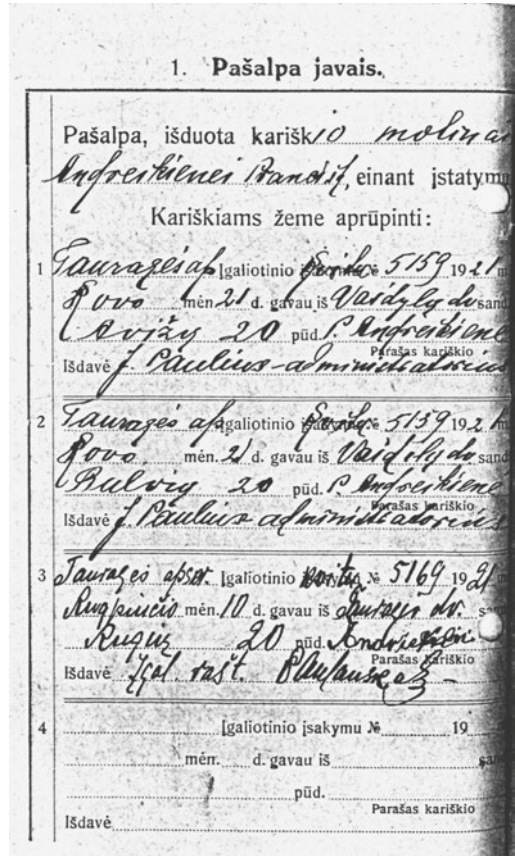 1. Pašalpa javais.
Pašalpa, išduota karišk10 motinai
Andreikienei Pranciš, einant įstatymu
Kariškiams žeme aprūpinti:
1 Tauragės ap Įgaliotinio № 5159 1921 m
Kovo mėn. 21 d. gavau iš Vaidylų dv sand
Avižų 20 püd. P. Andreikienė
Parašas kariškio
Išdavė J. Paulius - administratorius
2 Tauragės ap Įgaliotinio № 5159 1921 m
Kovo mėn. 21 d. gavau iš Vaidylų dv sand
20 püd. P. Andreikienė
Parašas kariškio
Išdavė J. Paulius administratorius
3 Tauragės apskr. Įgaliotinio № 5169 1921
Rugpiučio mėn. 10 d. gavau iš Tauragės dv.
Rugių 20 püd.
Parašas kariškio
Išdavė Įgal. rašt.
4 Įgaliotinio įsakymu № 19
mėn. d. gavau iš
pūd.
Parašas kariškio
Išdavė